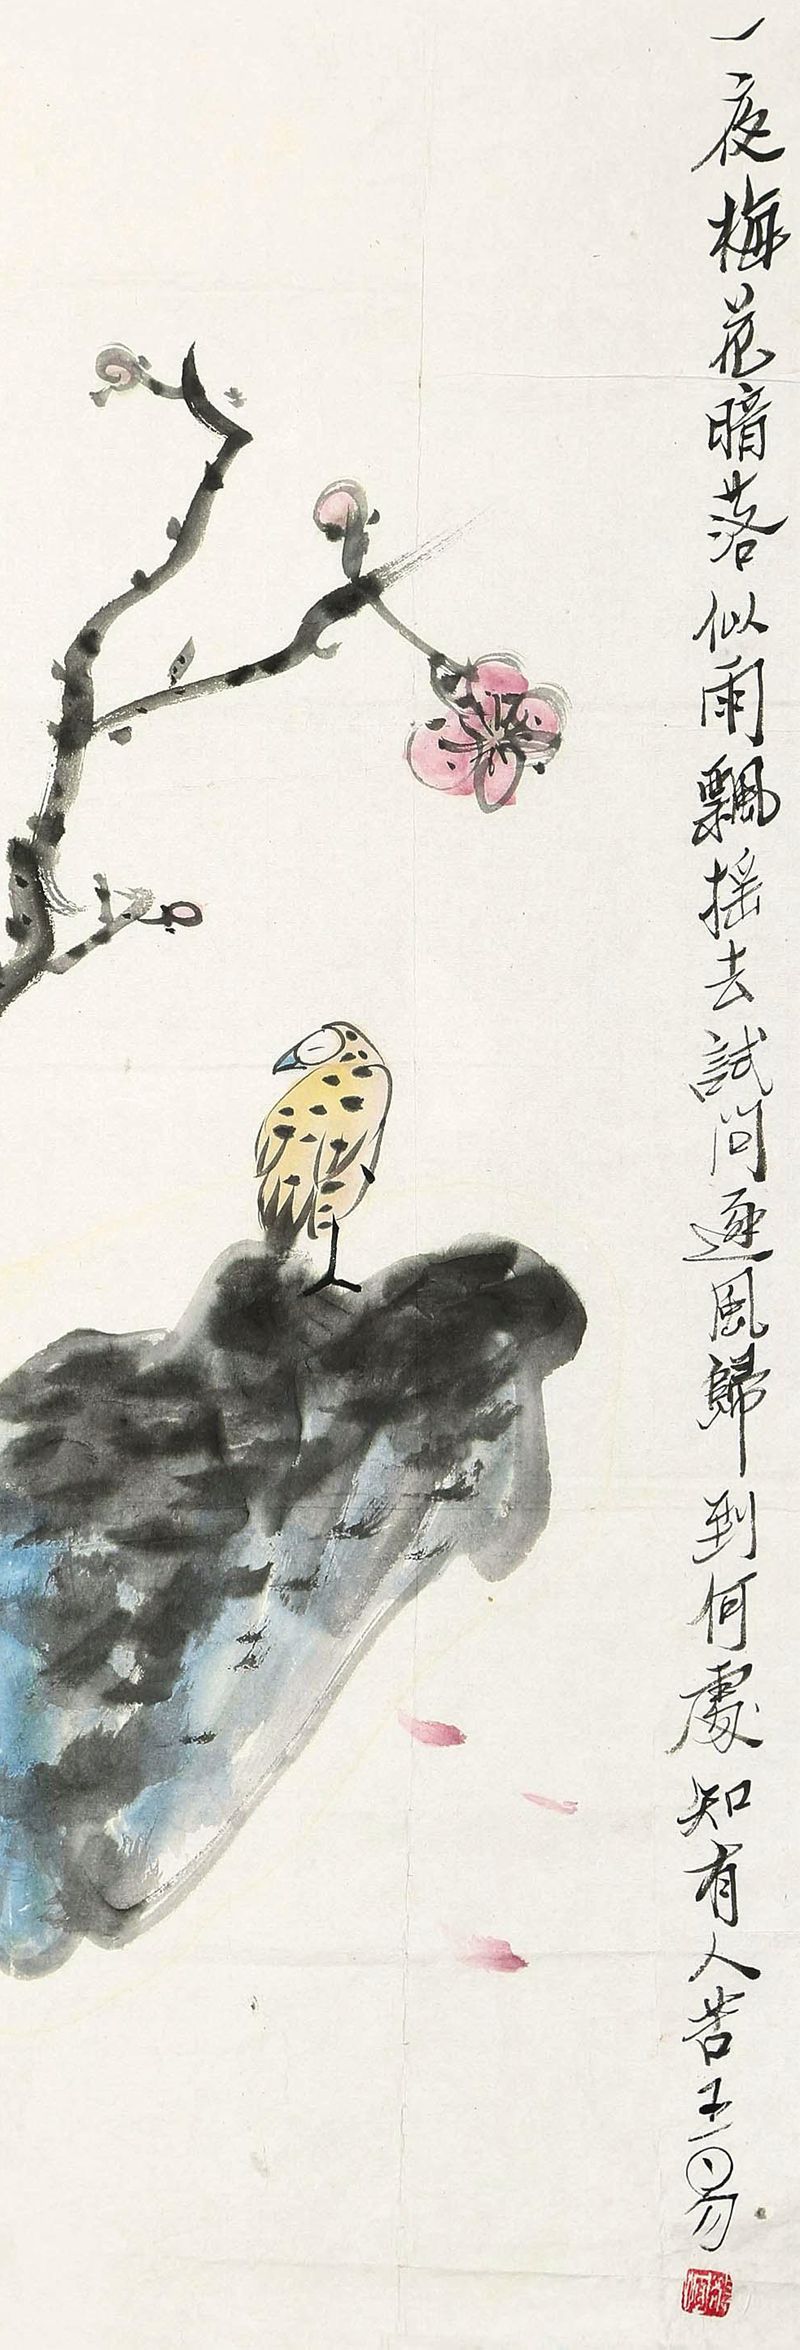 一夜梅花暗落似雨飄摇去試問逐風歸到何處知有人苦王易